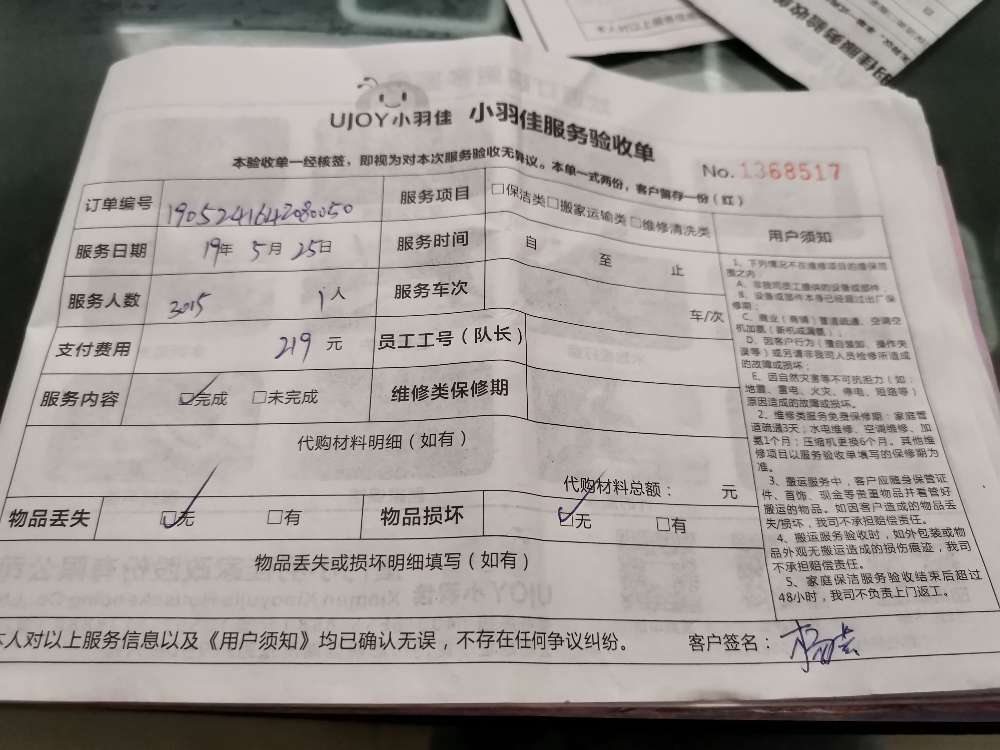 UJOY小羽佳 小羽佳服务验收单
本验收单一经核签，即视为对本次服务验收无异议。本单一式两份，客户留存一份（红）
No. 1368517
订单编号 190524164208050 服务项目 □保洁类□搬家运输类□维修清洗类
服务日期 19年 5月 25日 服务时间 自 至 止
服务人数 3015 1人 服务车次 车/次
支付费用 219 元 员工工号（队长）
服务内容 ☑完成 □未完成 维修类保修期
代购材料明细（如有）
代购材料总额： 元
物品丢失 ☑无 □有 物品损坏 ☑无 □有
物品丢失或损坏明细填写（如有）
用户须知
1、下列情况不在维修项目的维保范
围之内
A、非我司员工提供的设备或部件；
B、设备或部件本身已经超过出厂保
修期；
C、商业（商铺）管道疏通、空调空
机加氨（新机或漏氨）；
D、因客户行为（擅自装卸、操作失
误等）或另请非我司人员检修所造成
的故障或损坏；
E、因自然灾害等不可抗拒力（如：
地震、雷电、火灾、停电、短路等）
原因造成的故障或损坏。
2、维修类服务免身保修期：家庭管
道疏通3天；水电维修、空调维修、加
氨1个月；压缩机更换6个月。其他维
修项目以服务验收单填写的保修期为
准。
3、搬运服务中，客户应随身保管证
件、首饰、现金等贵重物品并看管好
搬运的物品。如因客户造成的物品丢
失/损坏，我司不承担赔偿责任。
4、搬运服务验收时，如外包装或物
品外观无搬运造成的损伤痕迹，我司
不承担赔偿责任。
5、家庭保洁服务验收结束后超过
48小时，我司不负责上门返工。
本人对以上服务信息以及《用户须知》均已确认无误，不存在任何争议纠纷。 客户签名：